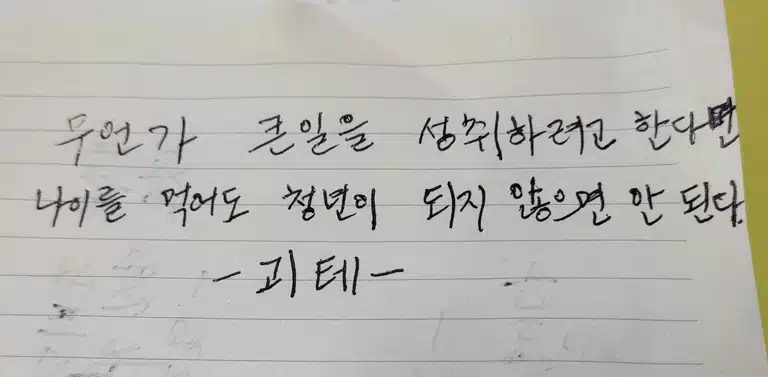 무언가 큰일을 성취하려고 한다면
나이를 먹어도 청년이 되지 않으면 안 된다.
- 괴테 -